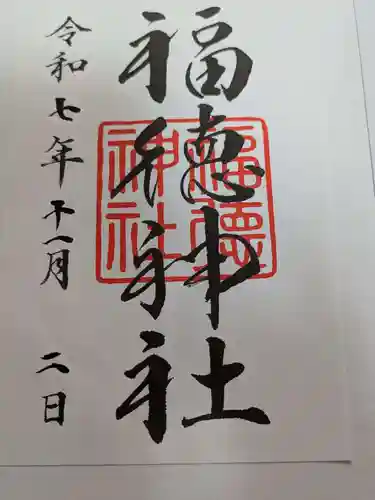 福徳神社
福徳
神社
令和七年十一月二日